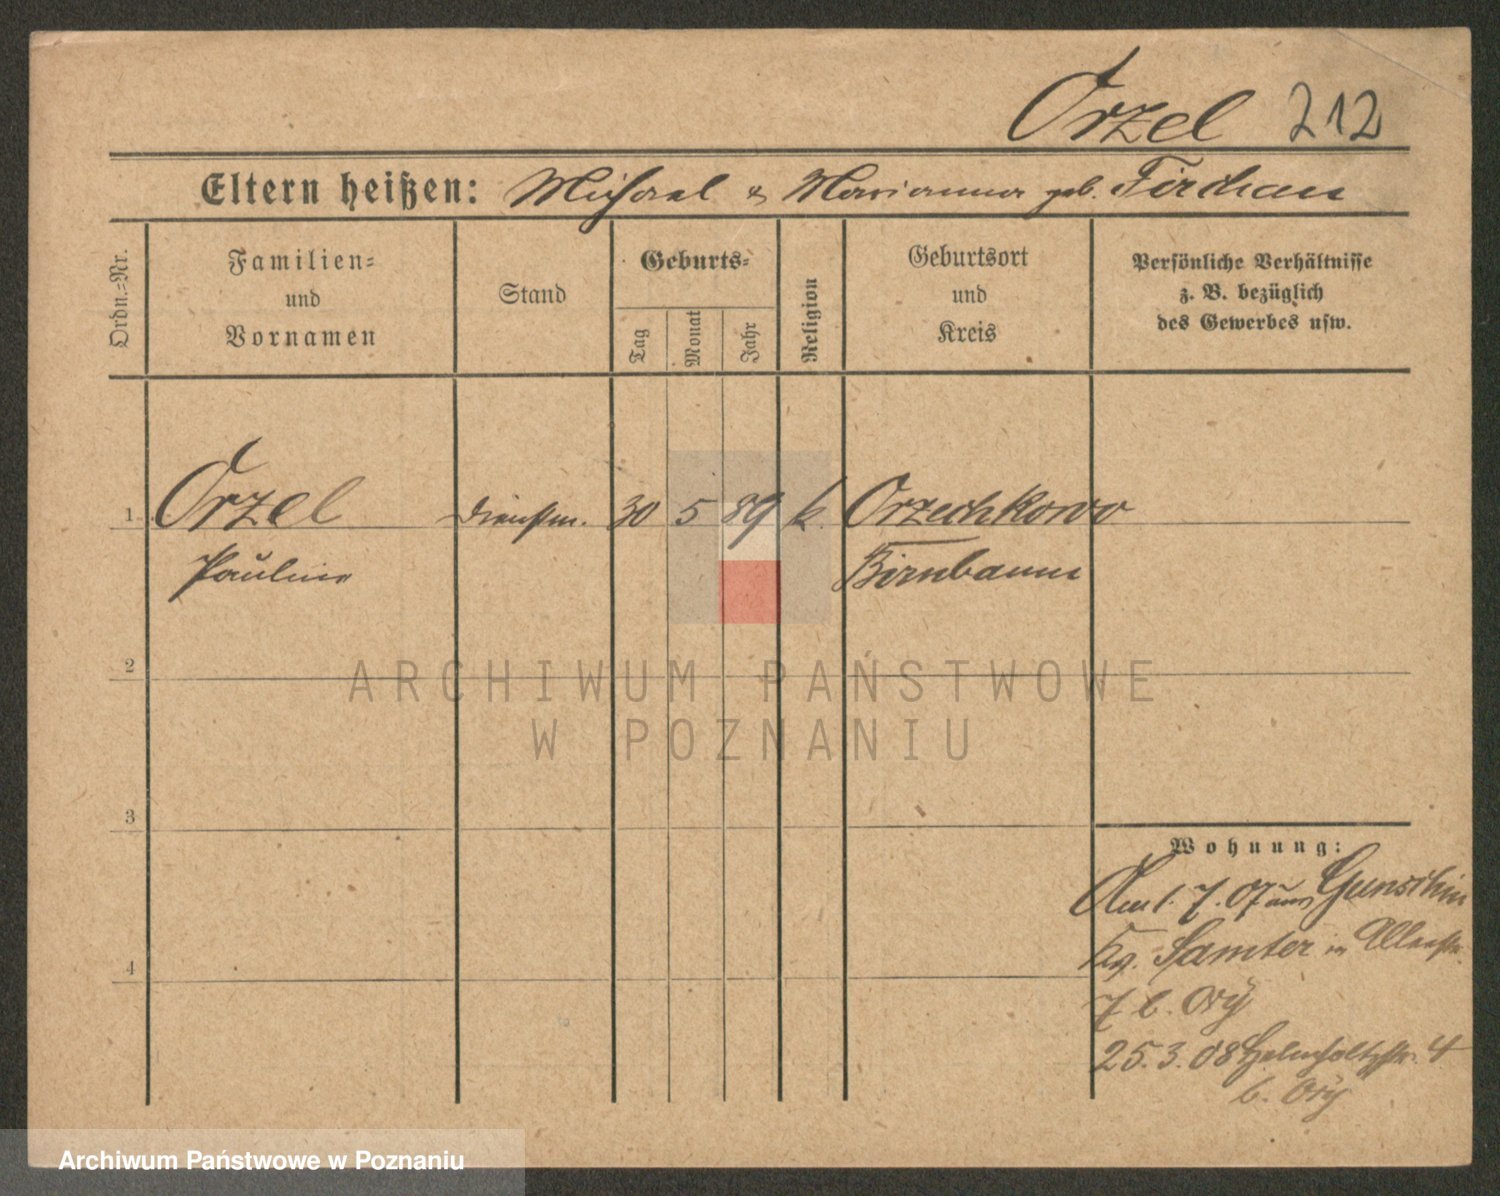 Orzel 212
Eltern heißen: Michael & Marianna geb. Firchau
Ordn.-Nr.
Familien-
und
Vornamen
Stand
Geburts-
Tag
Monat
Jahr
Religion
Geburtsort
und
Kreis
Persönliche Verhältnisse
z. B. bezüglich
des Gewerbes usw.
1 Orzel Dienstm. 30 5 89 k. Orzechkowo
Pauline Birnbaum
2
ARCHIWUM PAŃSTWOWE
W POZNANIU
3
Wohnung:
Am 1. 7. 07 aus
Kr. Samter in
4
7 b. Ory
25.3.08 Helmholtzstr. 4
b. Ory
Archiwum Państwowe w Poznaniu